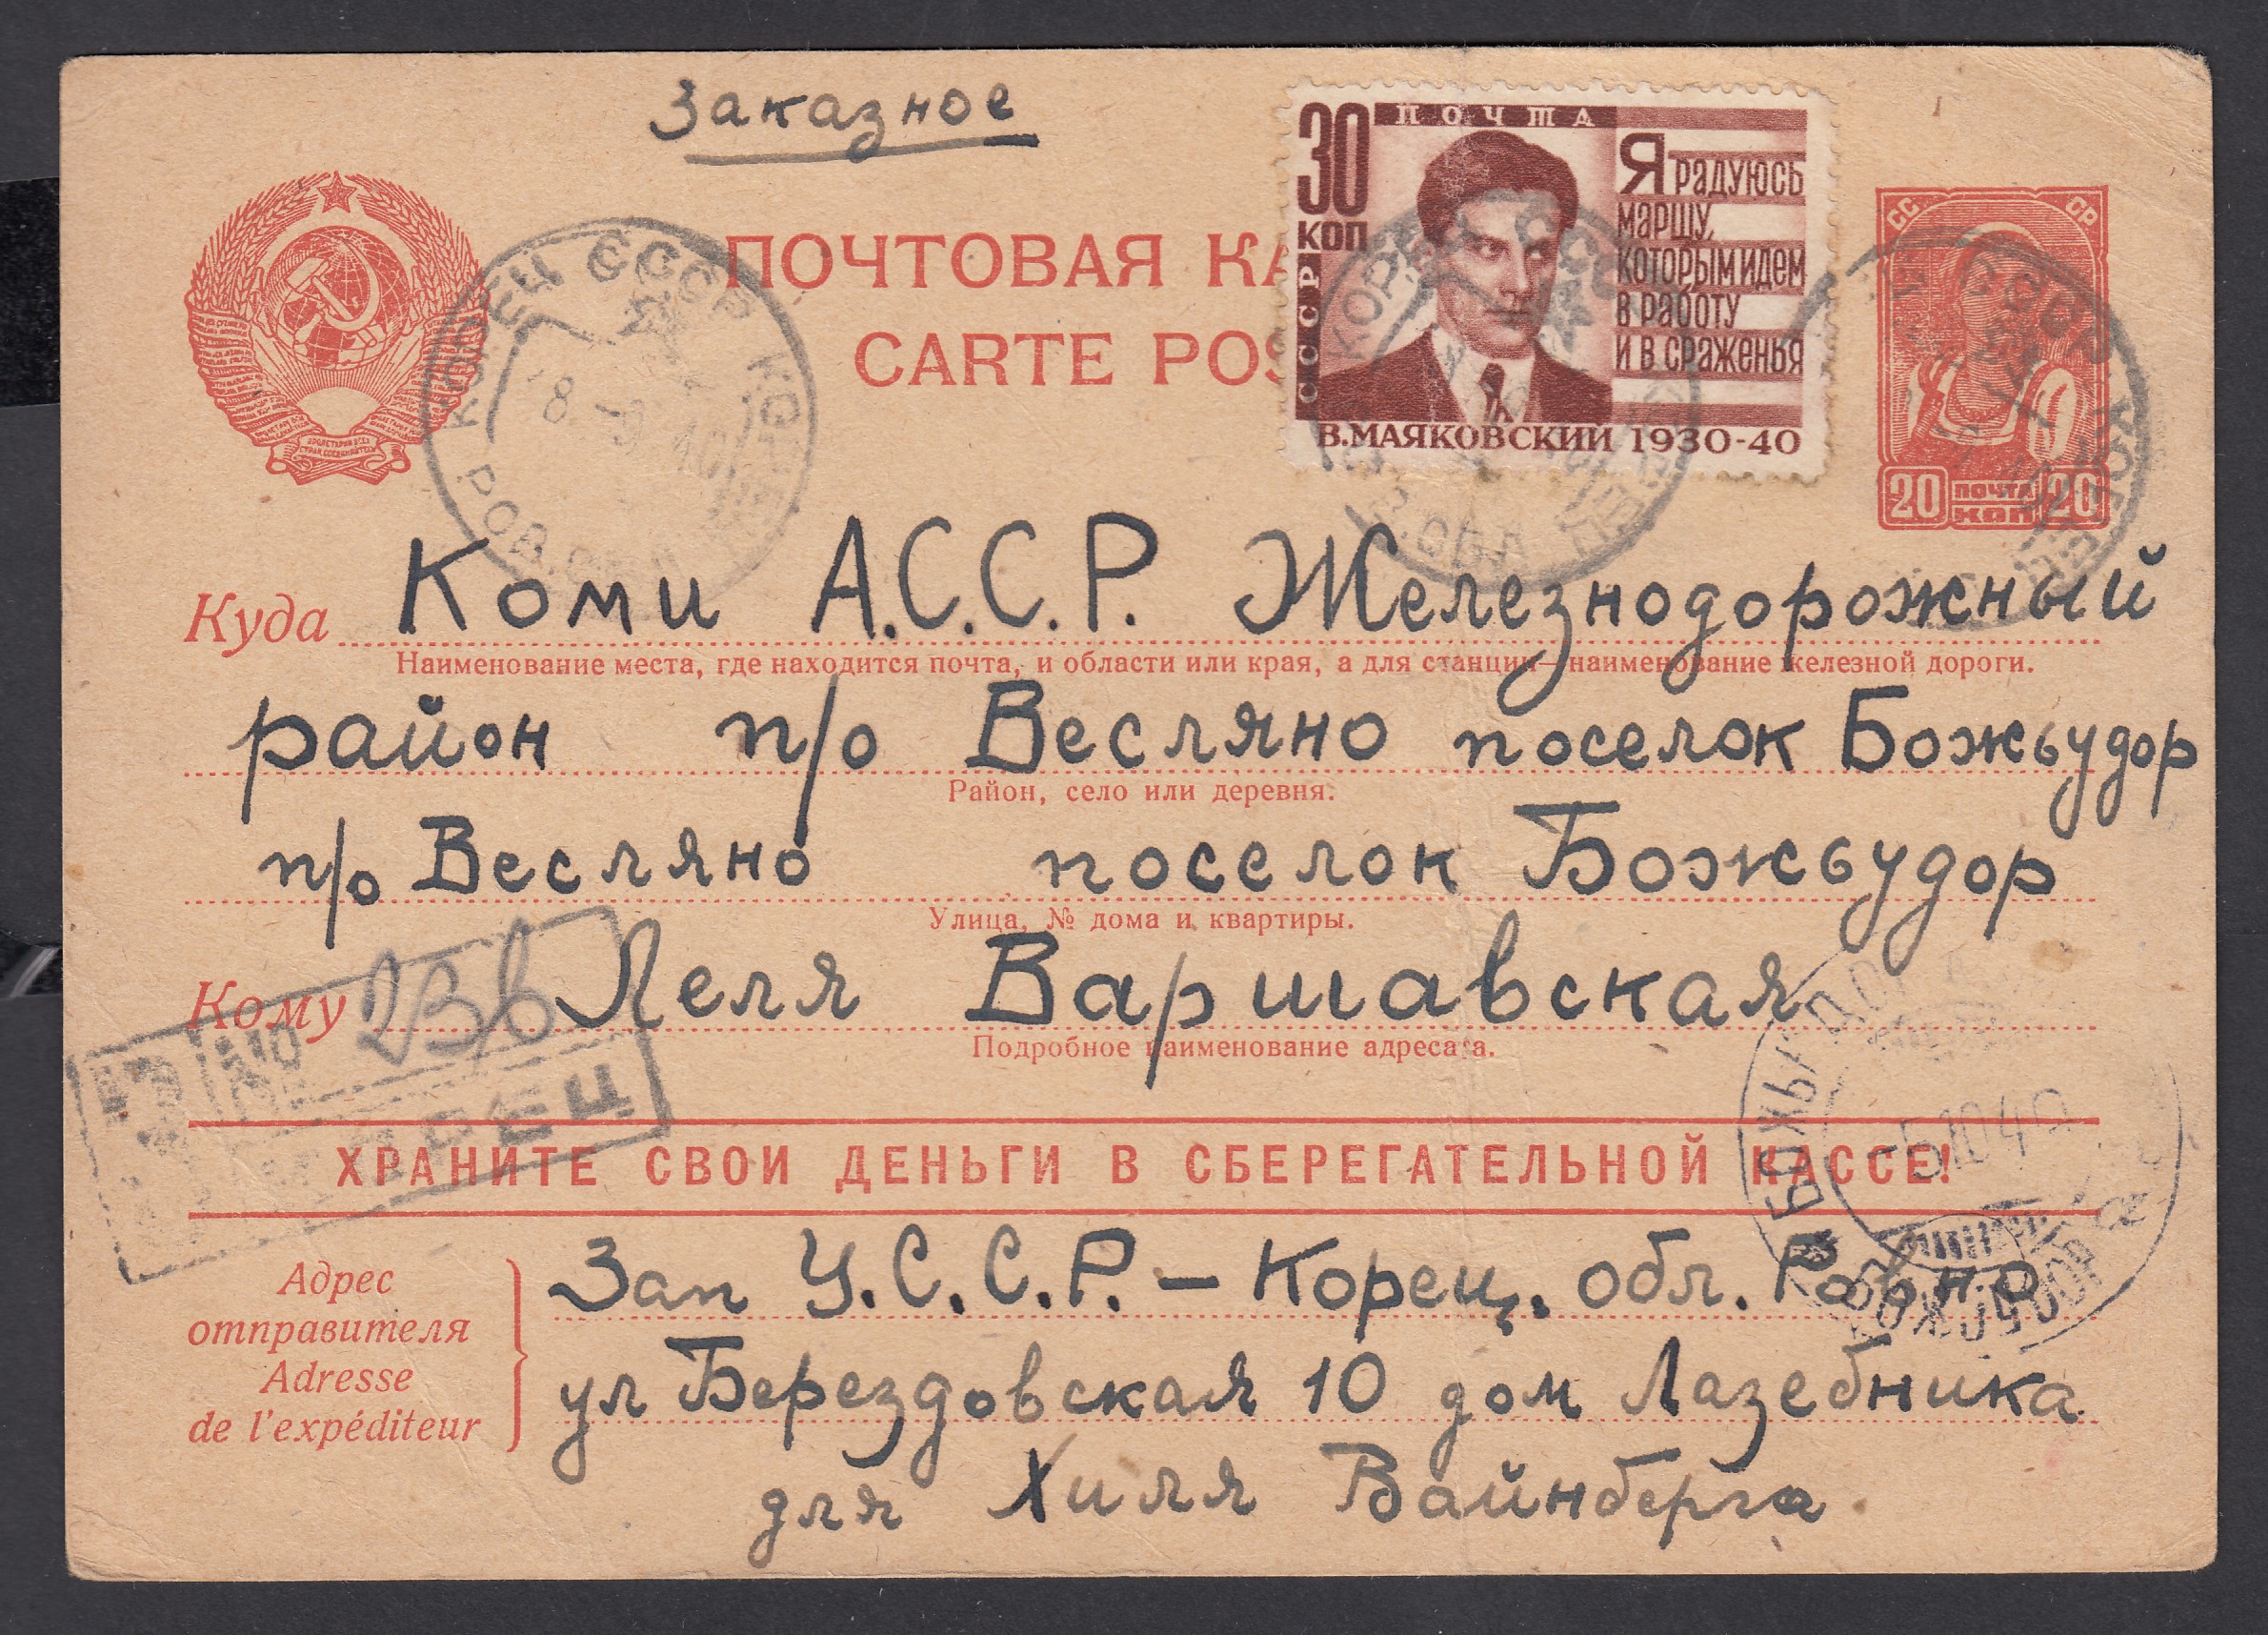 Заказное
ПОЧТОВАЯ КА
CARTE POS
30 КОП
ПОЧТА
СССР
Я РАДУЮСЬ
МАРШУ,
КОТОРЫМ ИДЕМ
В РАБОТУ
И В СРАЖЕНЬЯ
В. МАЯКОВСКИЙ 1930-40
СС СР
20 ПОЧТА КОП 20
КОРЕЦ СССР
РОВ. ОБЛ
КОРЕЦ СССР
Куда Коми А.С.С.Р. Железнодорожный
Наименование места, где находится почта, и области или края, а для станции—наименование железной дороги.
район п/о Весляно поселок Божьудор
Район, село или деревня.
п/о Весляно поселок Божьудор
Улица, № дома и квартиры.
Кому Леля Варшавская
Подробное наименование адресата.
№ 236
КОРЕЦ
БОЖЬУДОР
-5.10.40
ХРАНИТЕ СВОИ ДЕНЬГИ В СБЕРЕГАТЕЛЬНОЙ КАССЕ!
Адрес
отправителя
Adresse
de l'expéditeur
Зап У.С.С.Р. – Корец. обл. Ровно
ул Берездовская 10 дом Лазебника
для Хиля Вайнберга.